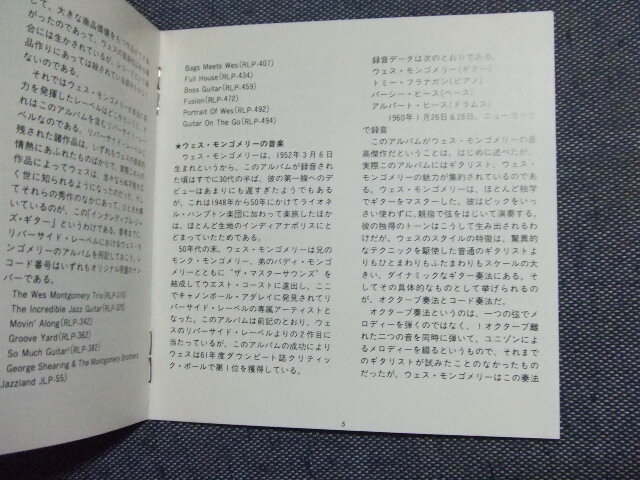 して、大きな商品価値をも
がったのであって、ウェスの
合には生かされているが、
品作りにあっては殺されている
ないのである。
それではウェス・モンゴメリーが
力を発揮したレーベルはどこか
れはこのアルバムを含むリバーサイド・レー
ベルなのである。リバーサイド・レーベルに
残された諸作品は、いずれもウェスの
情熱にあふれたものばかりで、実際これらの
作品によってウェスは、並々ならぬ才能を広
く世に知られるようになったのだった。そし
てそれらの秀作のなかにあって、ひときわ輝
いているのが、この「インクレディブル・ジャ
ズ・ギター」というわけである。参考までに、
リバーサイド・レーベルにおけるウェス・モ
ンゴメリーのアルバムを列記しておこう。レ
コード番号はいずれもオリジナル原盤のナン
バーである。
The Wes Montgomery Trio(RLP-310)
The Incredible Jazz Guitar(RLP-320)
Movin' Along(RLP-342)
Groove Yard(RLP-362)
So Much Guitar!(RLP-382)
George Shearing & The Montgomery Brothers
Jazzland JLP-55)
Bags Meets Wes(RLP-407)
Full House(RLP-434)
Boss Guitar(RLP-459)
Fusion(RLP-472)
Portrait Of Wes(RLP-492)
Guitar On The Go(RLP-494)
★ウェス・モンゴメリーの音楽
ウェス・モンゴメリーは、1952年3月6日
生まれというから、このアルバムが録音され
た頃はすでに30代の半ば、彼の第一線へのデ
ビューはあまりにも遅すぎたようでもある
が、これは1948年から50年にかけてライオネ
ル・ハンプトン楽団に加わって楽旅したほか
は、ほとんど生地のインディアナポリスにと
どまっていたためである。
50年代の末、ウェス・モンゴメリーは兄の
モンク・モンゴメリー、弟のバディ・モンゴ
メリーとともに“ザ・マスターサウンズ”を
結成してウエスト・コーストに進出し、ここ
でキャノンボール・アダレイに発見されてリ
バーサイド・レーベルの専属アーティストと
なった。このアルバムは前記のとおり、ウェ
スのリバーサイド・レーベルよりの2作目に
当たっているが、このアルバムの成功により
ウェスは61年度ダウンビート誌クリティッ
ク・ポールで第1位を獲得している。
録音データは次のとおりである。
ウェス・モンゴメリー(ギター)
トミー・フラナガン(ピアノ)
パーシー・ヒース(ベース)
アルバート・ヒース(ドラムス)
1960年1月26日&28日、ニューヨーク
で録音
このアルバムがウェス・モンゴメリーの最
高傑作だということは、はじめに述べたが、
実際このアルバムにはギタリスト、ウェス・
モンゴメリーの魅力が集約されているのであ
る。ウェス・モンゴメリーは、ほとんど独学
でギターをマスターした。彼はピックをいっ
さい使わずに、親指で弦をはじいて演奏する。
彼の独得のトーンはこうして生み出されるわ
けだが、ウェスのスタイルの特徴は、驚異的
なテクニックを駆使した普通のギタリストよ
りもひとまわりもふたまわりもスケールの大
きい、ダイナミックなギター奏法にある。そ
してその具体的なものとして挙げられるの
が、オクターブ奏法とコード奏法だ。
オクターブ奏法というのは、一つの弦でメ
ロディーを弾くのではなく、1オクターブ離
れた二つの音を同時に弾いて、ユニゾンによ
るメロディーを綴るというもので、それまで
のギタリストが試みたことのなかったもの
だったが、ウェス・モンゴメリーはこの奏法
5